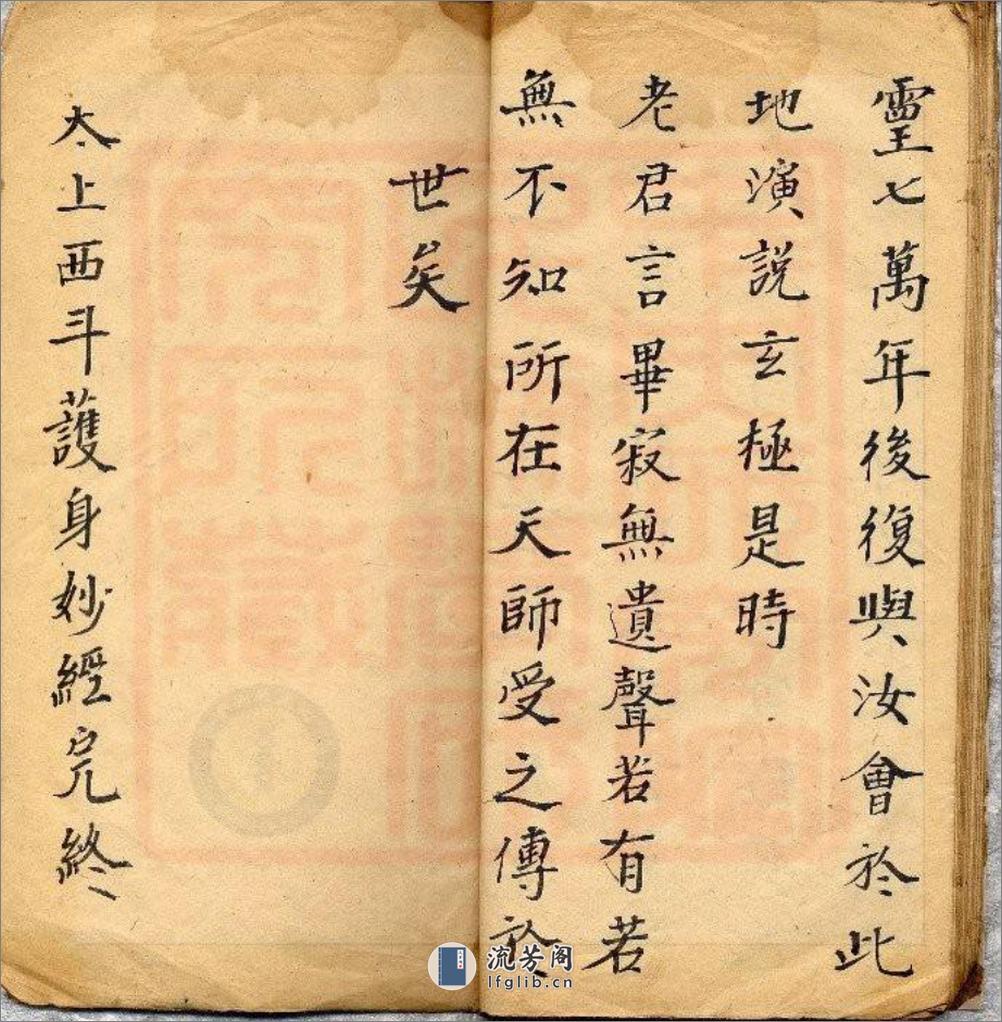 靈七萬年後復與汝會於此
地演說玄極是時
老君言畢寂無遺聲若有若
無不知所在天師受之傳於
世矣
太上西斗護身妙經完終
流芳阁
lfglib.cn